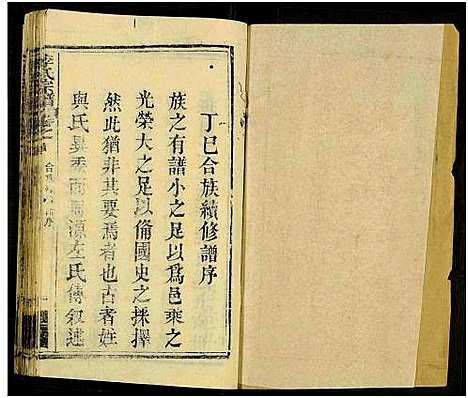 丁巳合族續修譜序
族之有譜小之足以爲邑乘之
光榮大之足以備國史之採擇
然此猶非其要焉者也古者姓
與氏異秀而同源左氏傳叙述
李氏宗譜